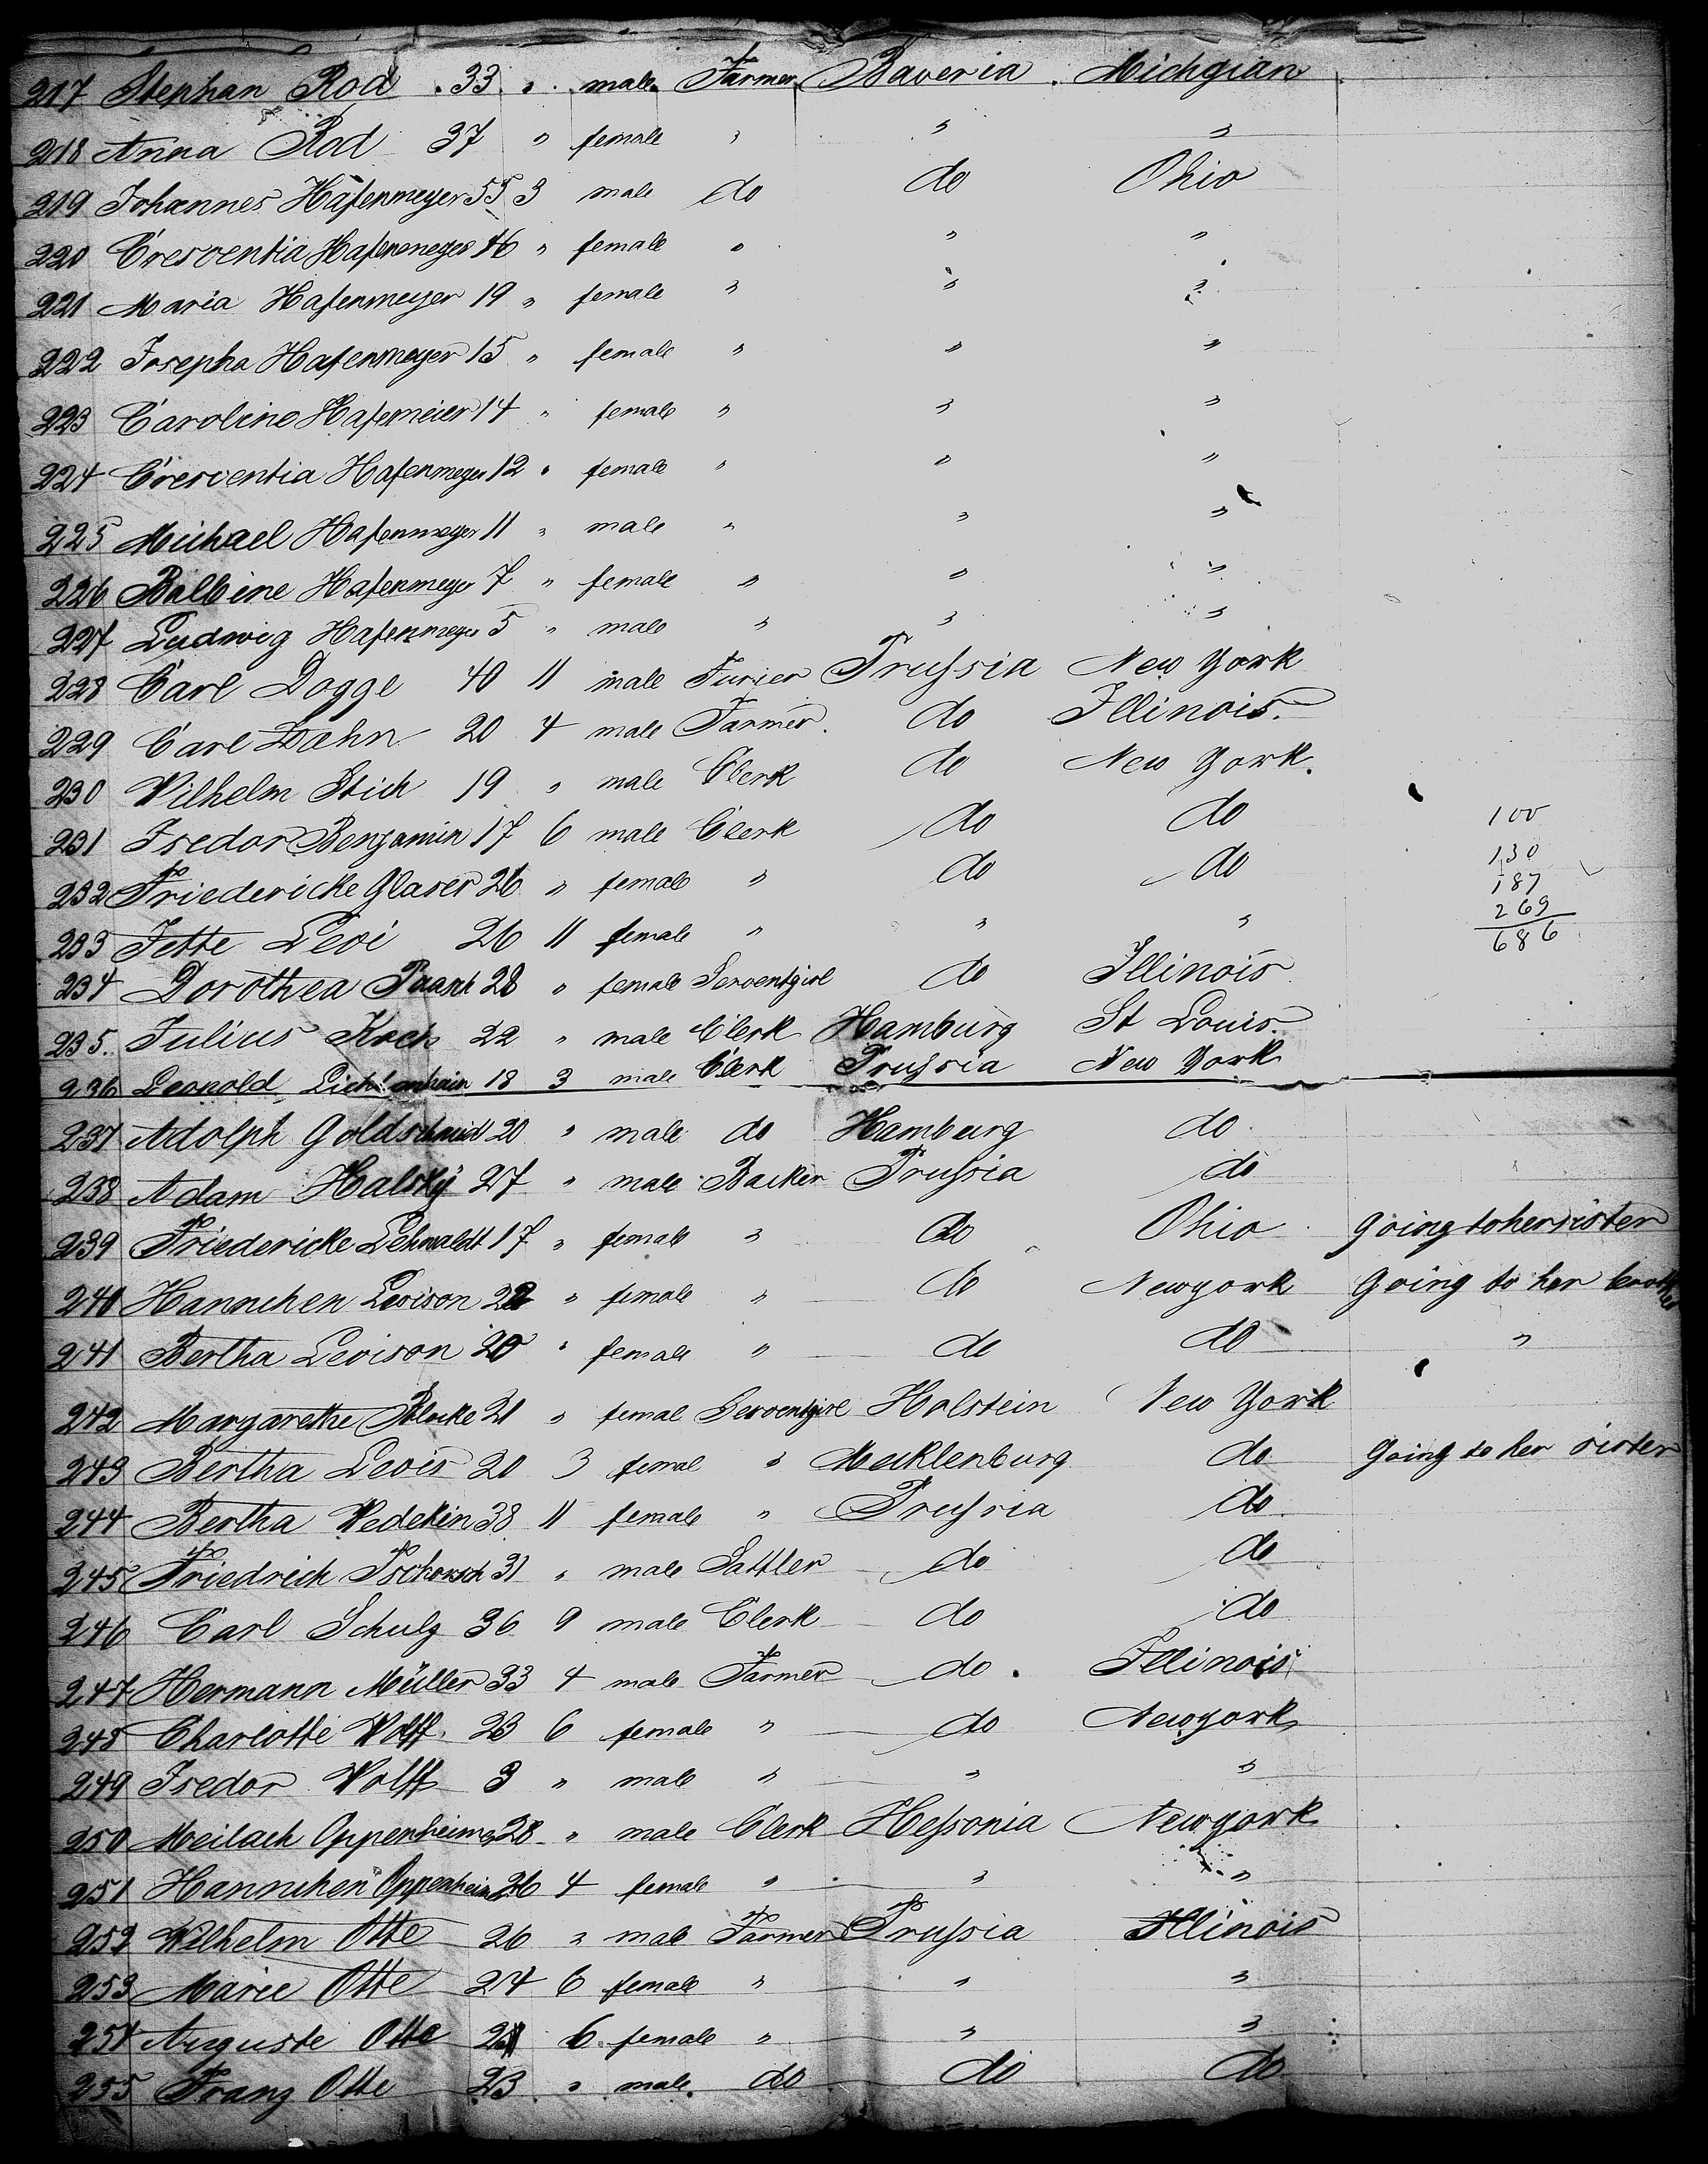 217 Stephan Rod 33 " male Farmer Bavaria Michgian
218 Anna Rod 37 " female " " "
219 Johannes Hafenmeyer 55 3 male do do Ohio
220 Cresventia Hafenmeyer 46 " female " " "
221 Maria Hafenmeyer 19 " female " " "
222 Josepha Hafenmeyer 15 " female " " "
223 Caroline Hafemeier 14 " female " " "
224 Cresventia Hafenmeyer 12 " female " " "
225 Michael Hafenmeyer 11 " male " " "
226 Balbine Hafenmeyer 7 " female " " "
227 Ludwig Hafenmeyer 5 " male " " "
228 Carl Dogge 40 11 male Furier Prussia New York
229 Carl Dahn 20 4 male Farmer do Illinois
230 Wilhelm Stich 19 " male Clerk do New York.
231 Isedor Benjamin 17 6 male Clerk do do 100
232 Friedericke Glaser 26 " female " do do 130
187
233 Jette Levi 26 11 female " " " 269
686
234 Dorothea Paasch 28 " female Serventgirl do Illinois
235. Julius Koch 22 " male Clerk Hamburg St Louis.
236 Leopold 18 3 male Clerk Prussia New York
237 Adolph Goldschmid 20 " male do Hamburg do
238 Adam Halsky 27 " male Backer Prussia do
239 Friedericke Lehwaldt 17 " female " do Ohio Going to her sister
240 Hannchen Levison 22 " female " do Newyork Going to her brother
241 Bertha Levison 20 " female " do do "
242 Margarethe Blocke 21 " femal Serventgirl Holstein New York
243 Bertha Levis 20 3 femal " Mecklenburg do Going to her sister
244 Bertha Wedekin 38 11 female " Prussia do
245 Friedrich 31 " male Sattler do do
246 Carl Schulz 36 9 male Clerk do do
247 Hermann Müller 33 4 male Farmer do Illinois
248 Charlotte Wolff 23 6 female " do Newyork
249 Isedor Wolff 3 " male " " "
250 Meilach Oppenheimer 28 " male Clerk Hessonia Newyork
251 Hannchen Oppenheim 26 4 female " " "
252 Wilhelm Otte 26 " male Farmer Prussia Illinois
253 Marie Otte 24 6 female " " "
254 Auguste Otte 6 female " " "
255 Franz Otte 23 " male do do do